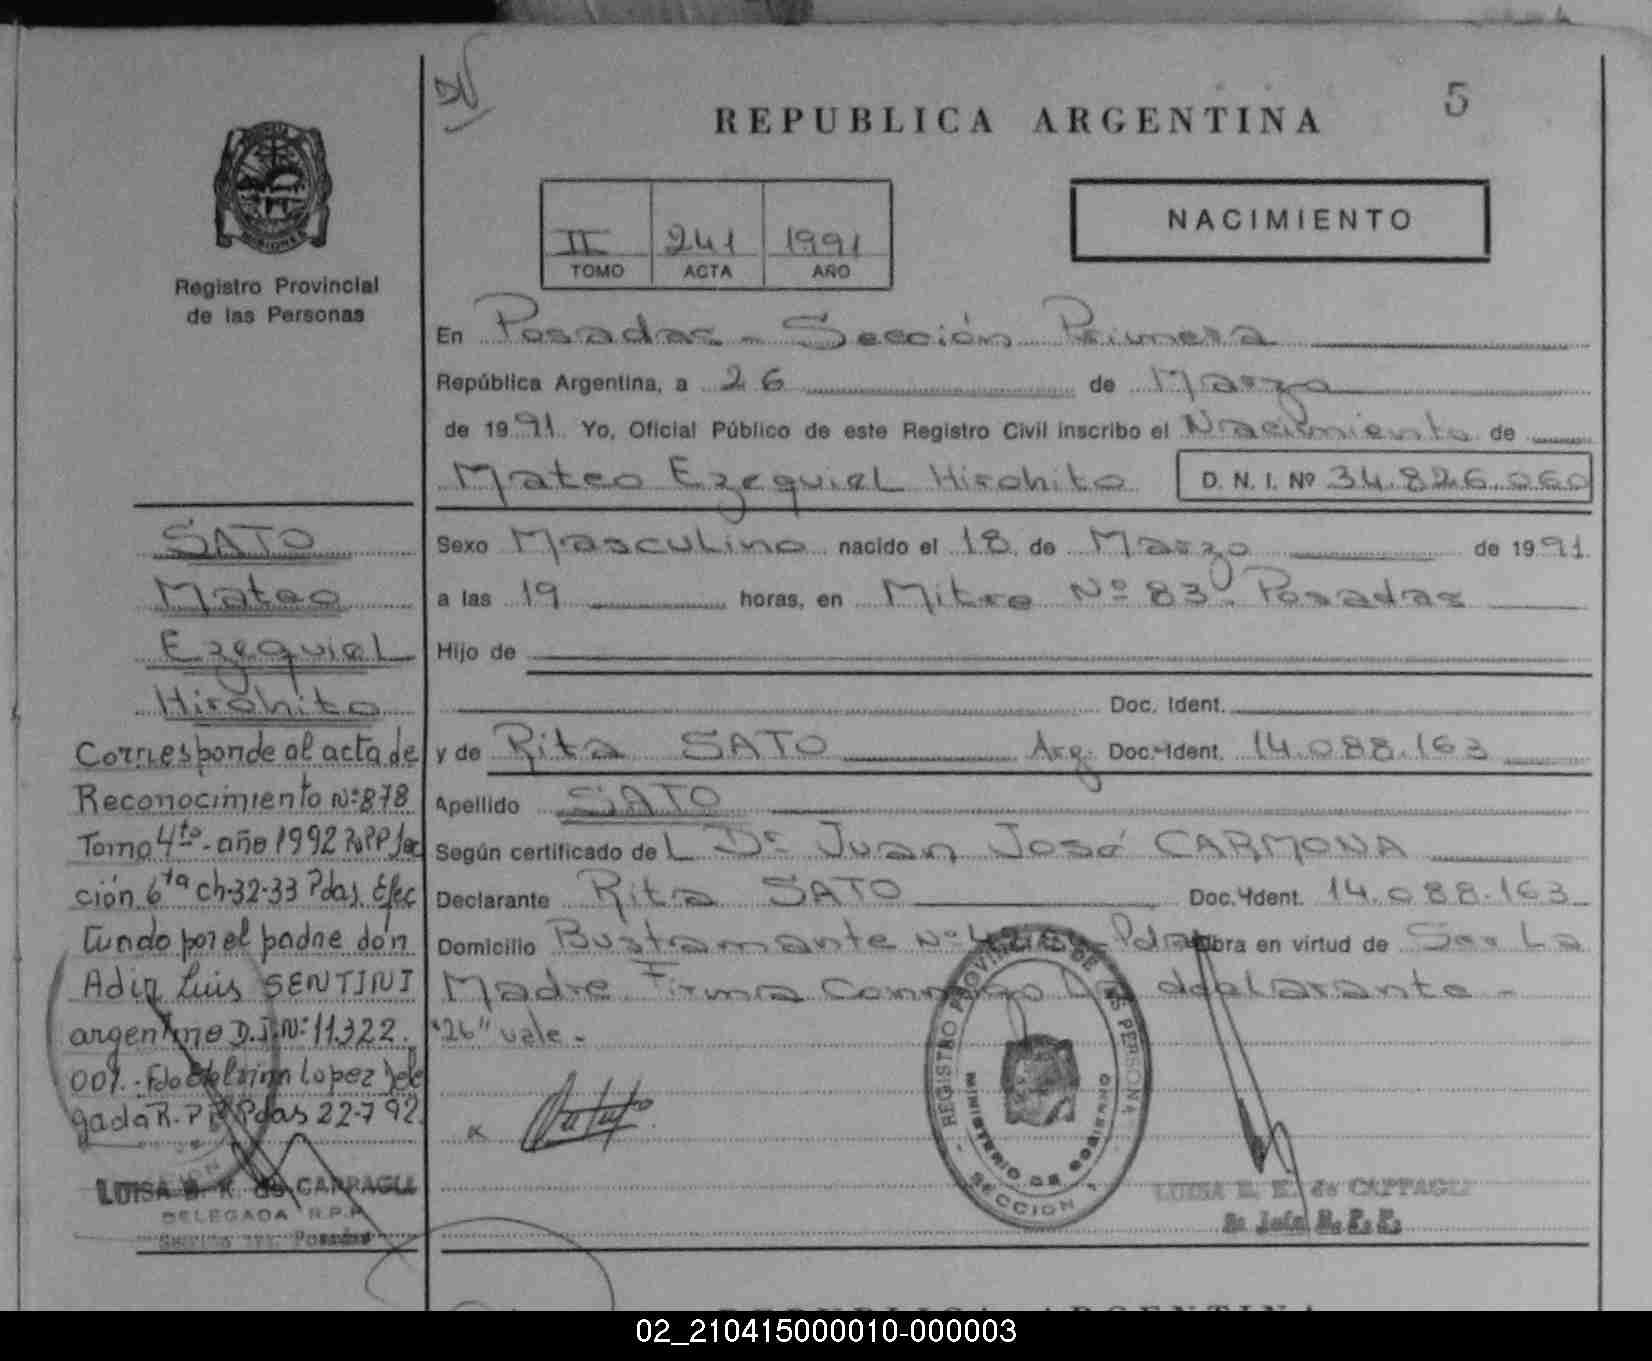 5
REPUBLICA ARGENTINA
NACIMIENTO
II 241 1991
TOMO ACTA AÑO
MISIONES
Registro Provincial
de las Personas
En Posadas - Sección Primera
República Argentina, a 26 de Marzo
de 1991 Yo, Oficial Público de este Registro Civil inscribo el Nacimiento de
Mateo Ezequiel Hirohito D. N. I. Nº 34.826.060
Sexo Masculino nacido el 18 de Marzo de 1991
a las 19 horas, en Mitre Nº 83 - Posadas
Hijo de
Doc. Ident.
y de Rita SATO Arg. Doc. Ident. 14.088.163
Apellido SATO
Según certificado del Dr Juan José CARMONA
Declarante Rita SATO Doc. Ident. 14.088.163
Domicilio Bustamante Nº Pdas Obra en virtud de Ser La
Madre Firma Conmigo La declarante -
"26" vale -
REGISTRO PROVINCIAL DE LAS PERSONAS
MINISTERIO DE GOBIERNO
SECCION 1
LUISA E. K. de CAPPAGLI
SATO
Mateo
Ezequiel
Hirohito
Corresponde al acta de
Reconocimiento Nº 878
Tomo 4to - año 1992 RPP Sec
ción 6ta Ch-32-33 Pdas. Efec
tuado por el padre don
Luis SENTINI
argentino D.I.Nº 11.322.
001.- Fdo Lopez Dele
gada R.P.P Pdas 22-7 92.
LUISA E. K. de CAPPAGLI
DELEGADA R.P.P
Posadas
REPUBLICA ARGENTINA
02_210415000010-000003